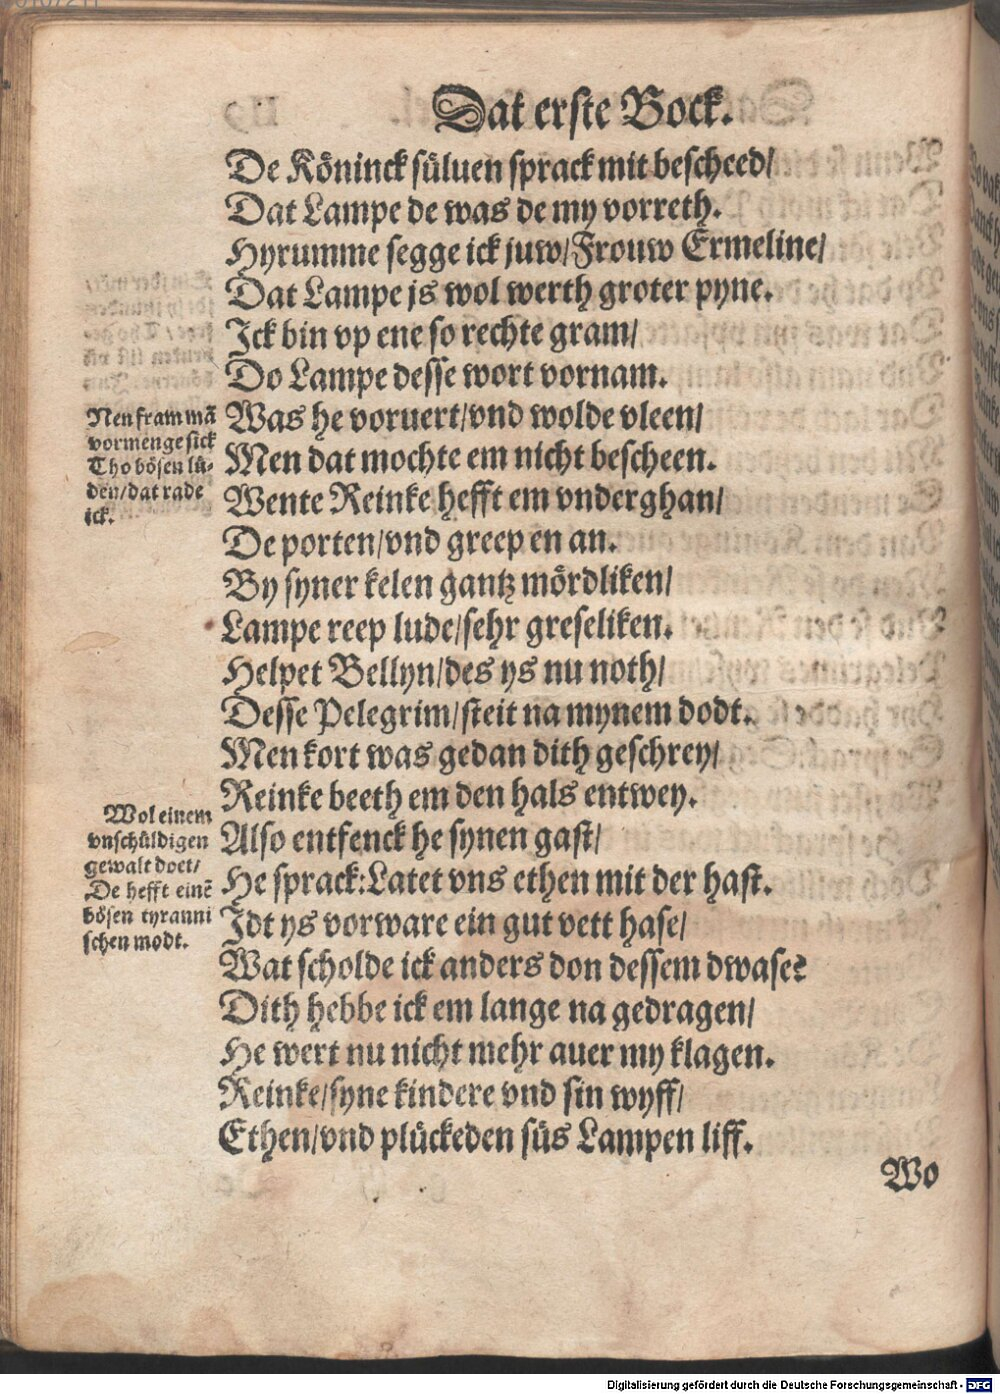 Dat erste Bock.
De Köninck süluen sprack mit bescheed/
Dat Lampe de was de my vorreth.
Hyrumme segge ick juw/Frouw Ermeline/
Dat Lampe js wol werth groter pyne.
Ick bin vp ene so rechte gram/
Do Lampe desse wort vornam.
Was he voruert/vnd wolde vleen/
Men dat mochte em nicht bescheen.
Wente Reinke hefft em vnderghan/
De porten/vnd greep en an.
By syner kelen gantz mördliken/
Lampe reep lude/sehr greseliken.
Helpet Bellyn/des ys nu noth/
Desse Pelegrim/steit na mynem dodt.
Men kort was gedan dith geschrey/
Reinke beeth em den hals entwey.
Also entfenck he synen gast/
He sprack:Latet vns ethen mit der hast.
Idt ys vorware ein gut vett hase/
Wat scholde ick anders don dessem dwase?
Dith hebbe ick em lange na gedragen/
He wert nu nicht mehr auer my klagen.
Reinke/syne kindere vnd sin wyff/
Ethen/vnd plückeden süs Lampen liff.
Wo
Nen fram mā
vormenge sick
Tho bösen lü-
den/dat rade
ick.
Wol einem
vnschüldigen
gewalt doet/
De hefft einē
bösen tyranni
schen modt.
Digitalisierung gefördert durch die Deutsche Forschungsgemeinschaft - DFG